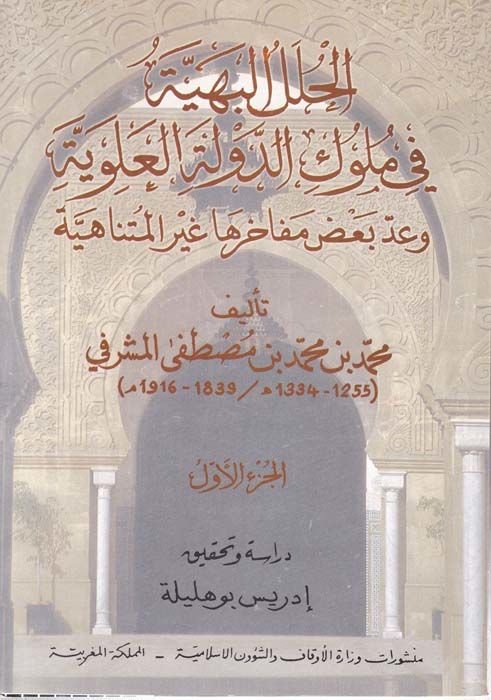 الحُلَلُ البَهِيَّة
في مُلوكِ الدَّوْلَةِ العَلَوِيَّة
وعدّ بَعْض مَفاخرِها غَيْر المُتَناهيَة
تأليف
محمّد بن محمّد بن مُصْطَفى المشرفي
(1255 - 1334 هـ / 1839 - 1916 م)
الجزء الأوّل
دراسة وتحقيق
إدريس بوهليلة
منشورات وزارة الأوقاف والشؤون الإسلامية - المملكة المغربية